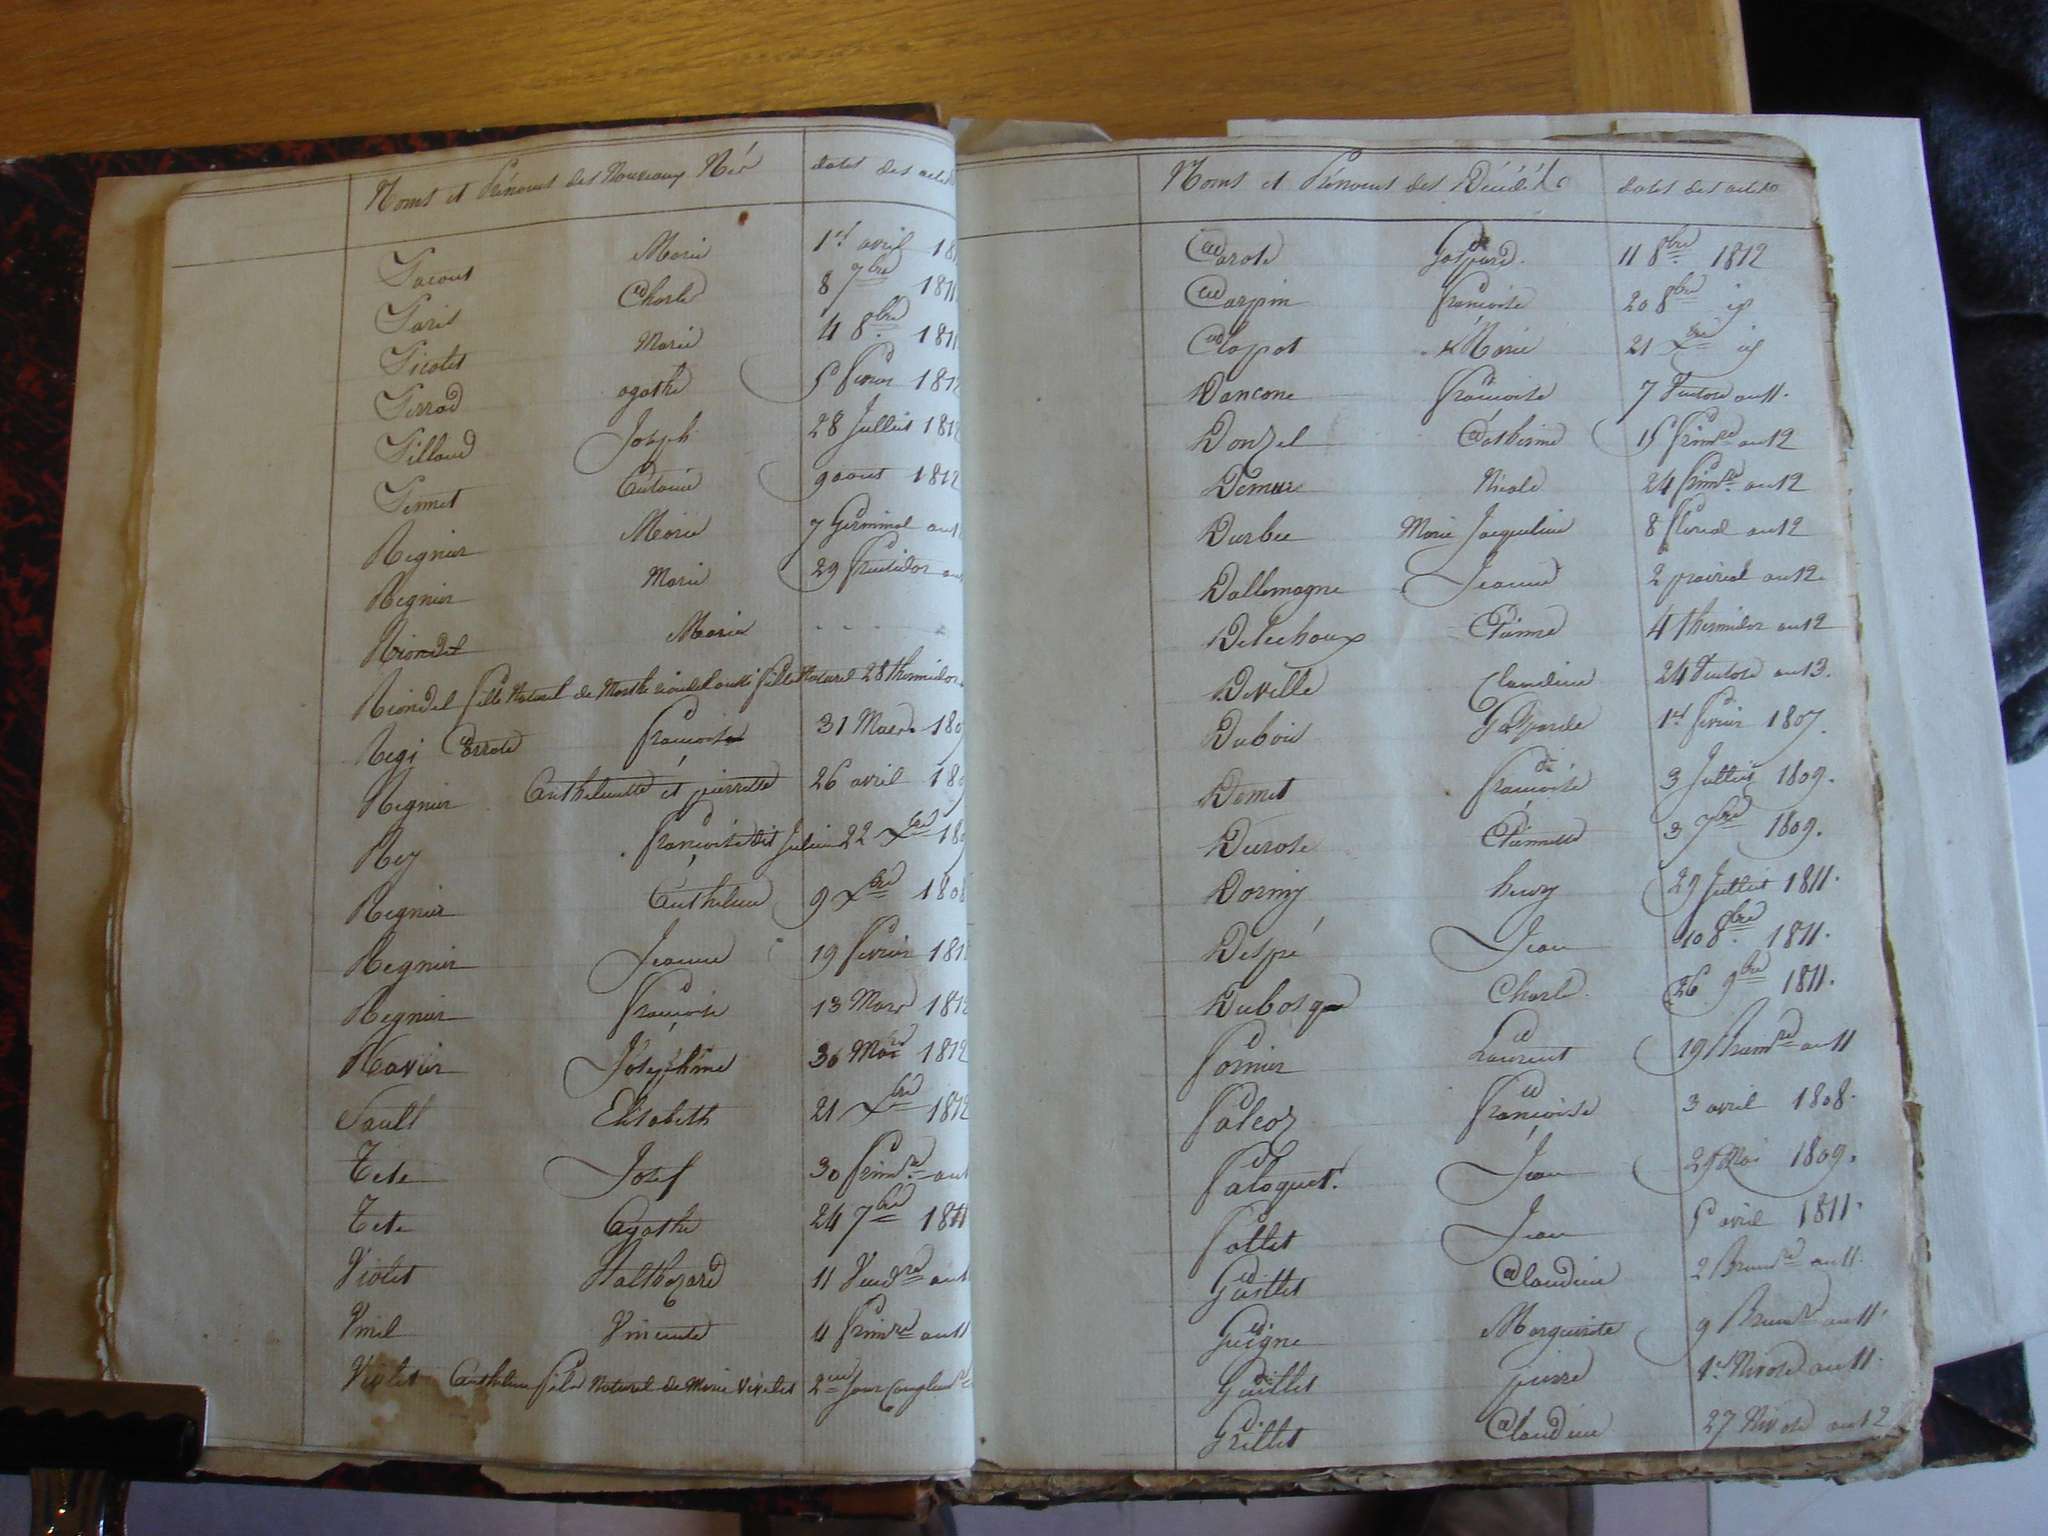 Noms et Prénoms des Nouveaux Nés dates des actes
Pacout Marie 1er avril
Paris Charle 8 7bre 1811
Picolet Marie 4 8bre 1811
Perrad agathe 5 février 1812
Pilloud Joseph 28 Jullet 1812
Pernet Antoine 9 aout 1812
Regnier Marie 7 Germinal an
Regnier Marie 29 fructidor an
Riondel Marie
Riondel fille Naturel de Marthe riondel aussi fille Naturel 28 thermidor
Regi Errate françoise 31 Mars 180
Regnier Anthelmette et pierrette 26 avril 180
Rey françoise dit Julien 22 Xbre 180
Regnier Anthelme 9 Xbre 1808
Regnier Jeanne 19 fevrier 181
Regnier françoise 13 Mars 1812
Ravier Joséphine 30 Mars 1812
Sault Elisabeth 21 Xbre 1812
Tete Josef 30 frimre an
Tete Agathe 24 7bre 1811
Violet Balthazard 11 Vendre an
Vmil Vincente 4 frimre an 11
Violet Anthelme fils Naturel de Marie Violet 2me Jour
Noms et Prénoms des Décédés dates des actes
Carote Gaspard 11 8bre 1812
Carpin françoise 20 8bre id
Clapot Marie 21 Xbre id
Dancone françoise 7 Ventose an 11.
Donzel Catherine 15 frimre an 12
Demure Nicole 24 frimre an 12
Durbee Marie Jacqueline 8 floreal an 12
Dallemagne Jeanne 2 prairial an 12
Delechoux Etienne 4 thermidor an 12
Deville Claudine 24 Ventose an 13.
Dubois Gasparde 1er fevrier 1807.
Demet françoise 3 Jullet 1809.
Durose Etiennette 3 7bre 1809.
Dorniy henry 29 Jullet 1811.
Despré Jean 10 8bre 1811.
Dubosq Charle 26 9bre 1811.
fornier Laurent 19 Brumre an 11
falcoz françoise 3 avril 1808.
faloquet. Jean 25 Mai 1809.
follet Jean 5 avril 1811.
Guillet Claudine 2 Brumre an 11.
Guigne Marguerite 9 Brumre an 11.
Guillet pierre 1er Nivose an 11.
Grillet Claudine 27 Nivose an 12